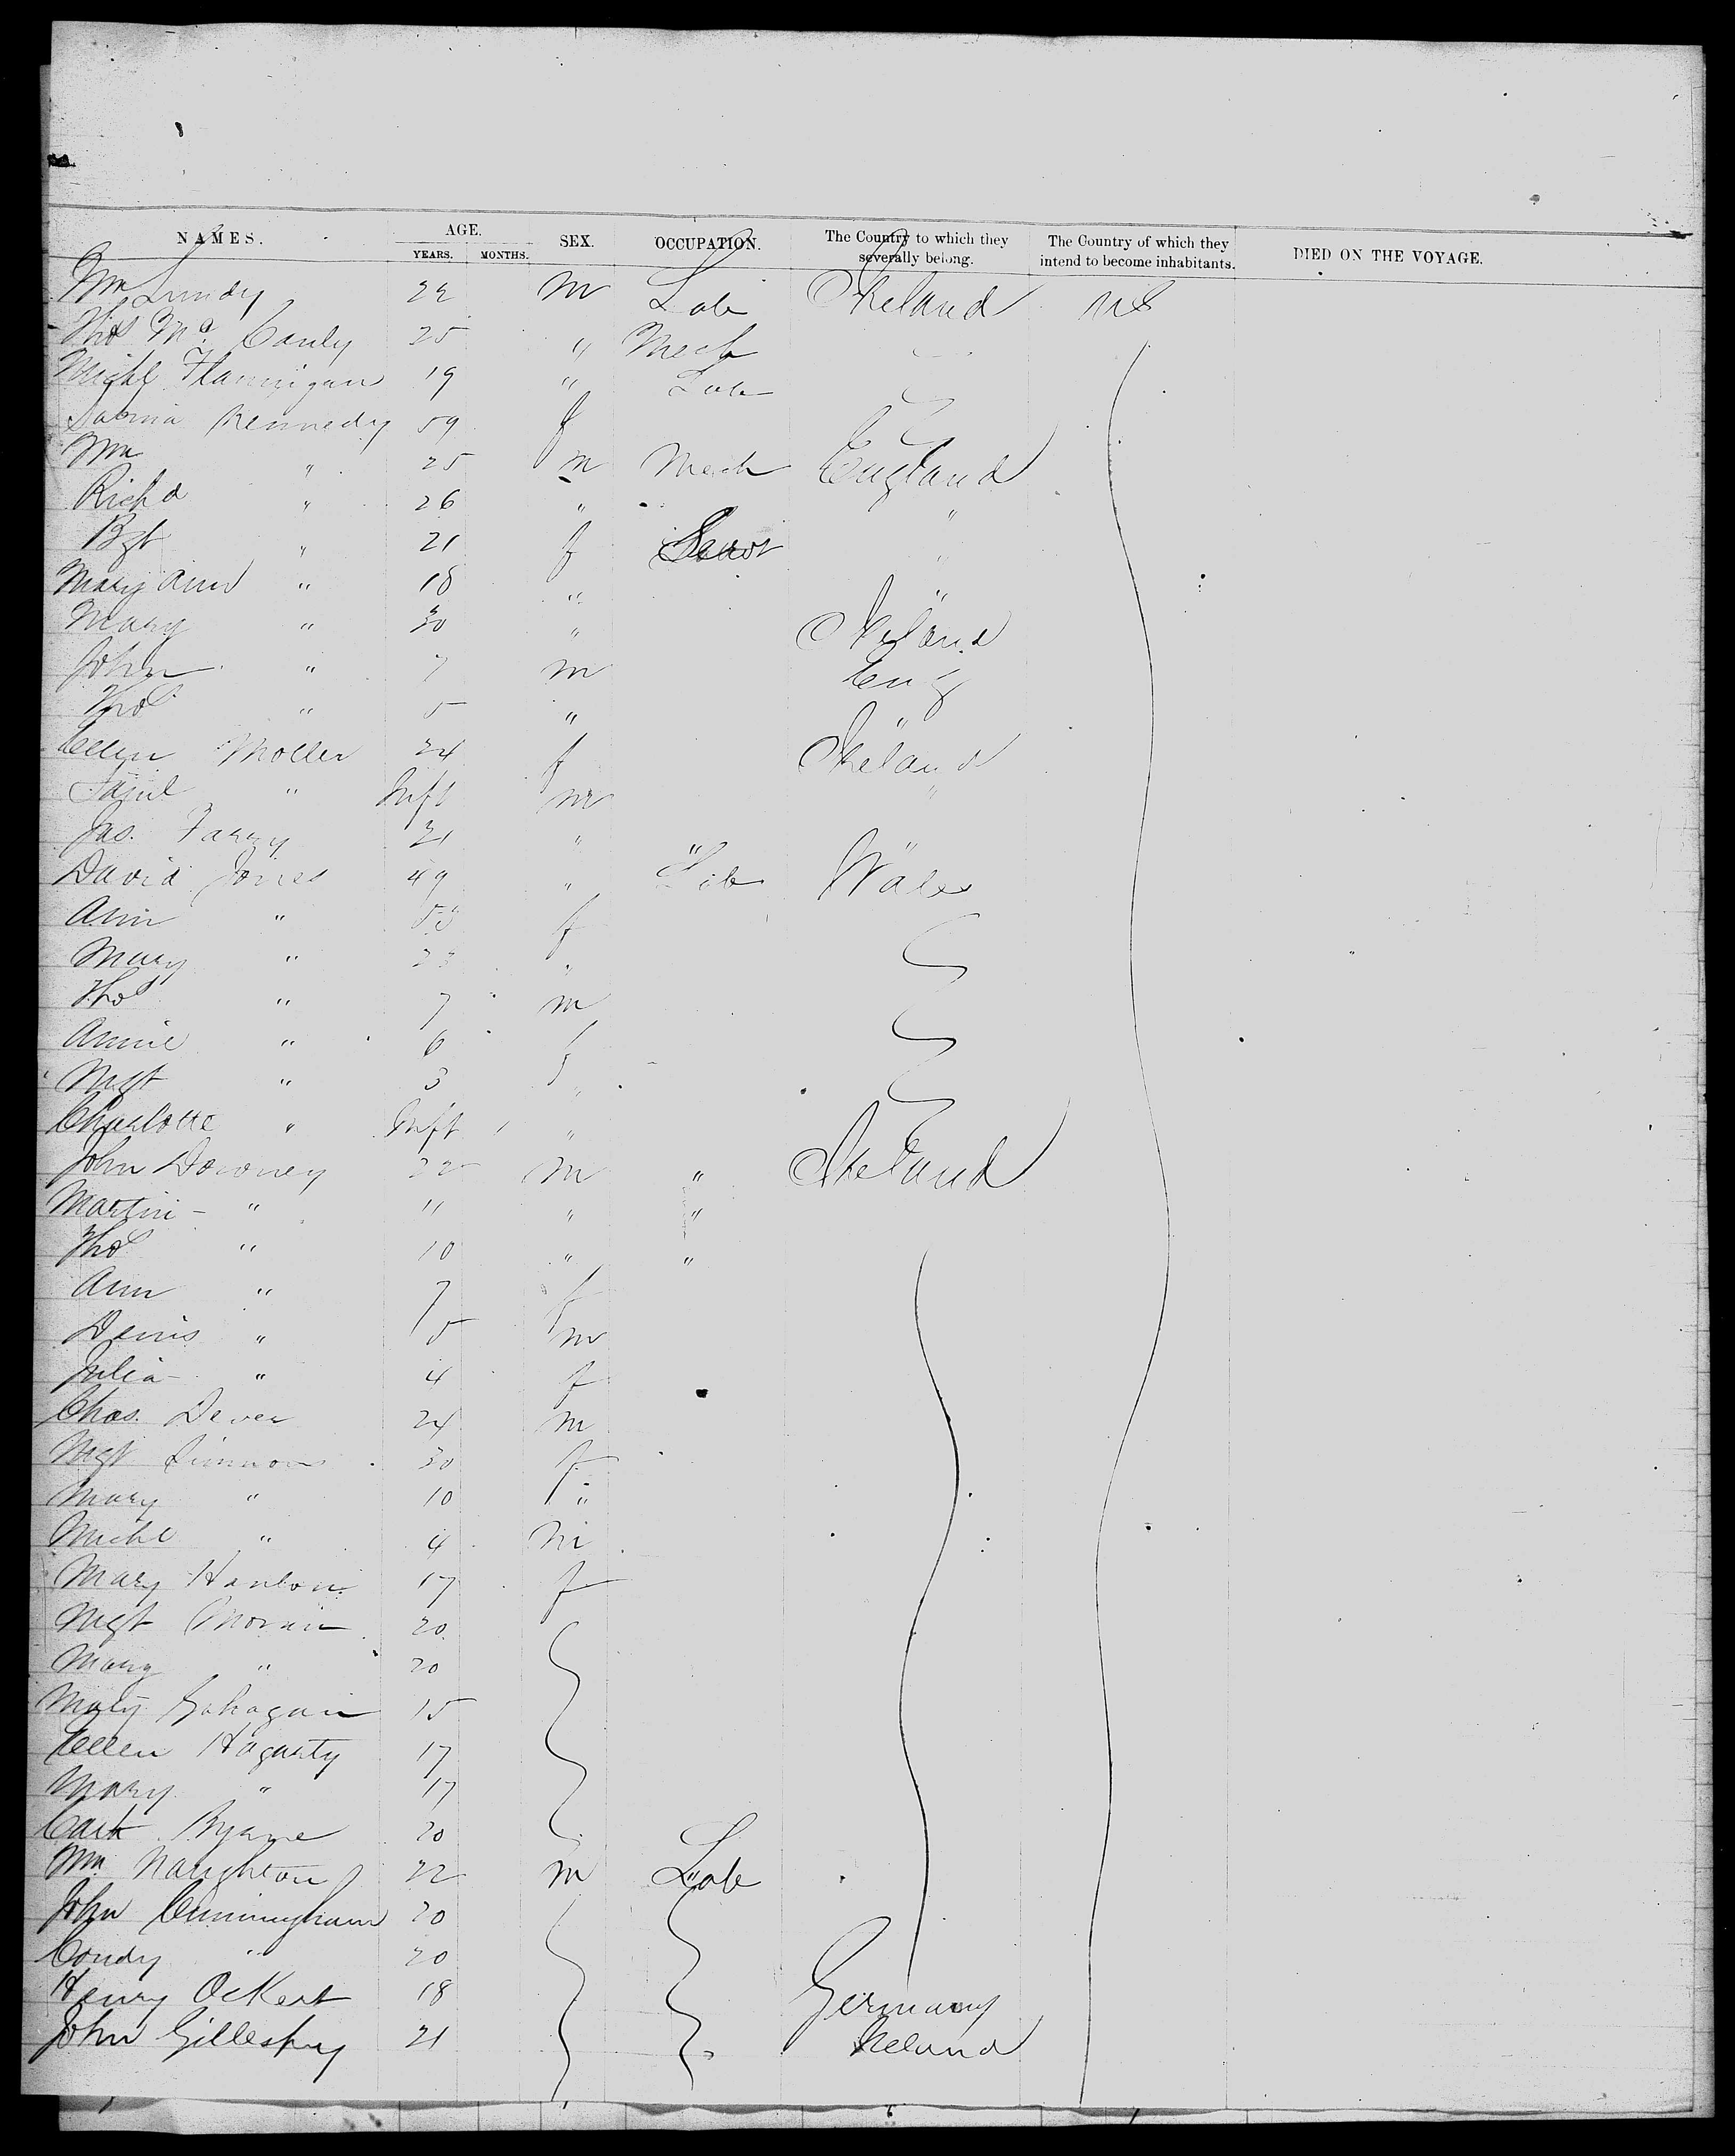 NAMES. AGE. YEARS. MONTHS. SEX. OCCUPATION. The Country to which they severally belong. The Country of which they intend to become inhabitants. DIED ON THE VOYAGE.
Wm Lundy 22 m Lab Ireland US
Thos Mc Cauly 25 " Mech
Michl Flannigan 19 " Lab
Sabina Kennedy 59 f
Wm " 25 m Mech England
Richd " 26 " "
Bgt " 21 f Servt "
Mary Ann " 18 " "
Mary " 30 " Ireland
John " 7 m Eng
Thos " 5 " "
Ellen Moller 24 f Ireland
Saml " Inft m "
Jas. Farry 21 " " "
David Jones 49 " Lab Wales
Ann " f
Mary " "
Thos " 7 m
Annie " 6 f
Mgt " 3 "
Charlotte " Inft "
John Downey 22 m " Ireland
Martin " 11 " "
Thos " 10 " "
Ann " 7 f
Denis " 5 m
Julia " 4 f
Chas. Dever 24 m
Mgt Simmons 30 f
Mary " 10 "
Michl " 4 m
Mary Hanlon 17 f
Mgt Moran 20
Mary " 20
Mary Gahagan 15
Ellen Hagarty 17
Mary " 17
Cath Byrne 20
Wm Naughton 22 m Lab
John Cunningham 20
Condy " 20
Henry Ockert 18 Germany
John Gillespey 21 Ireland